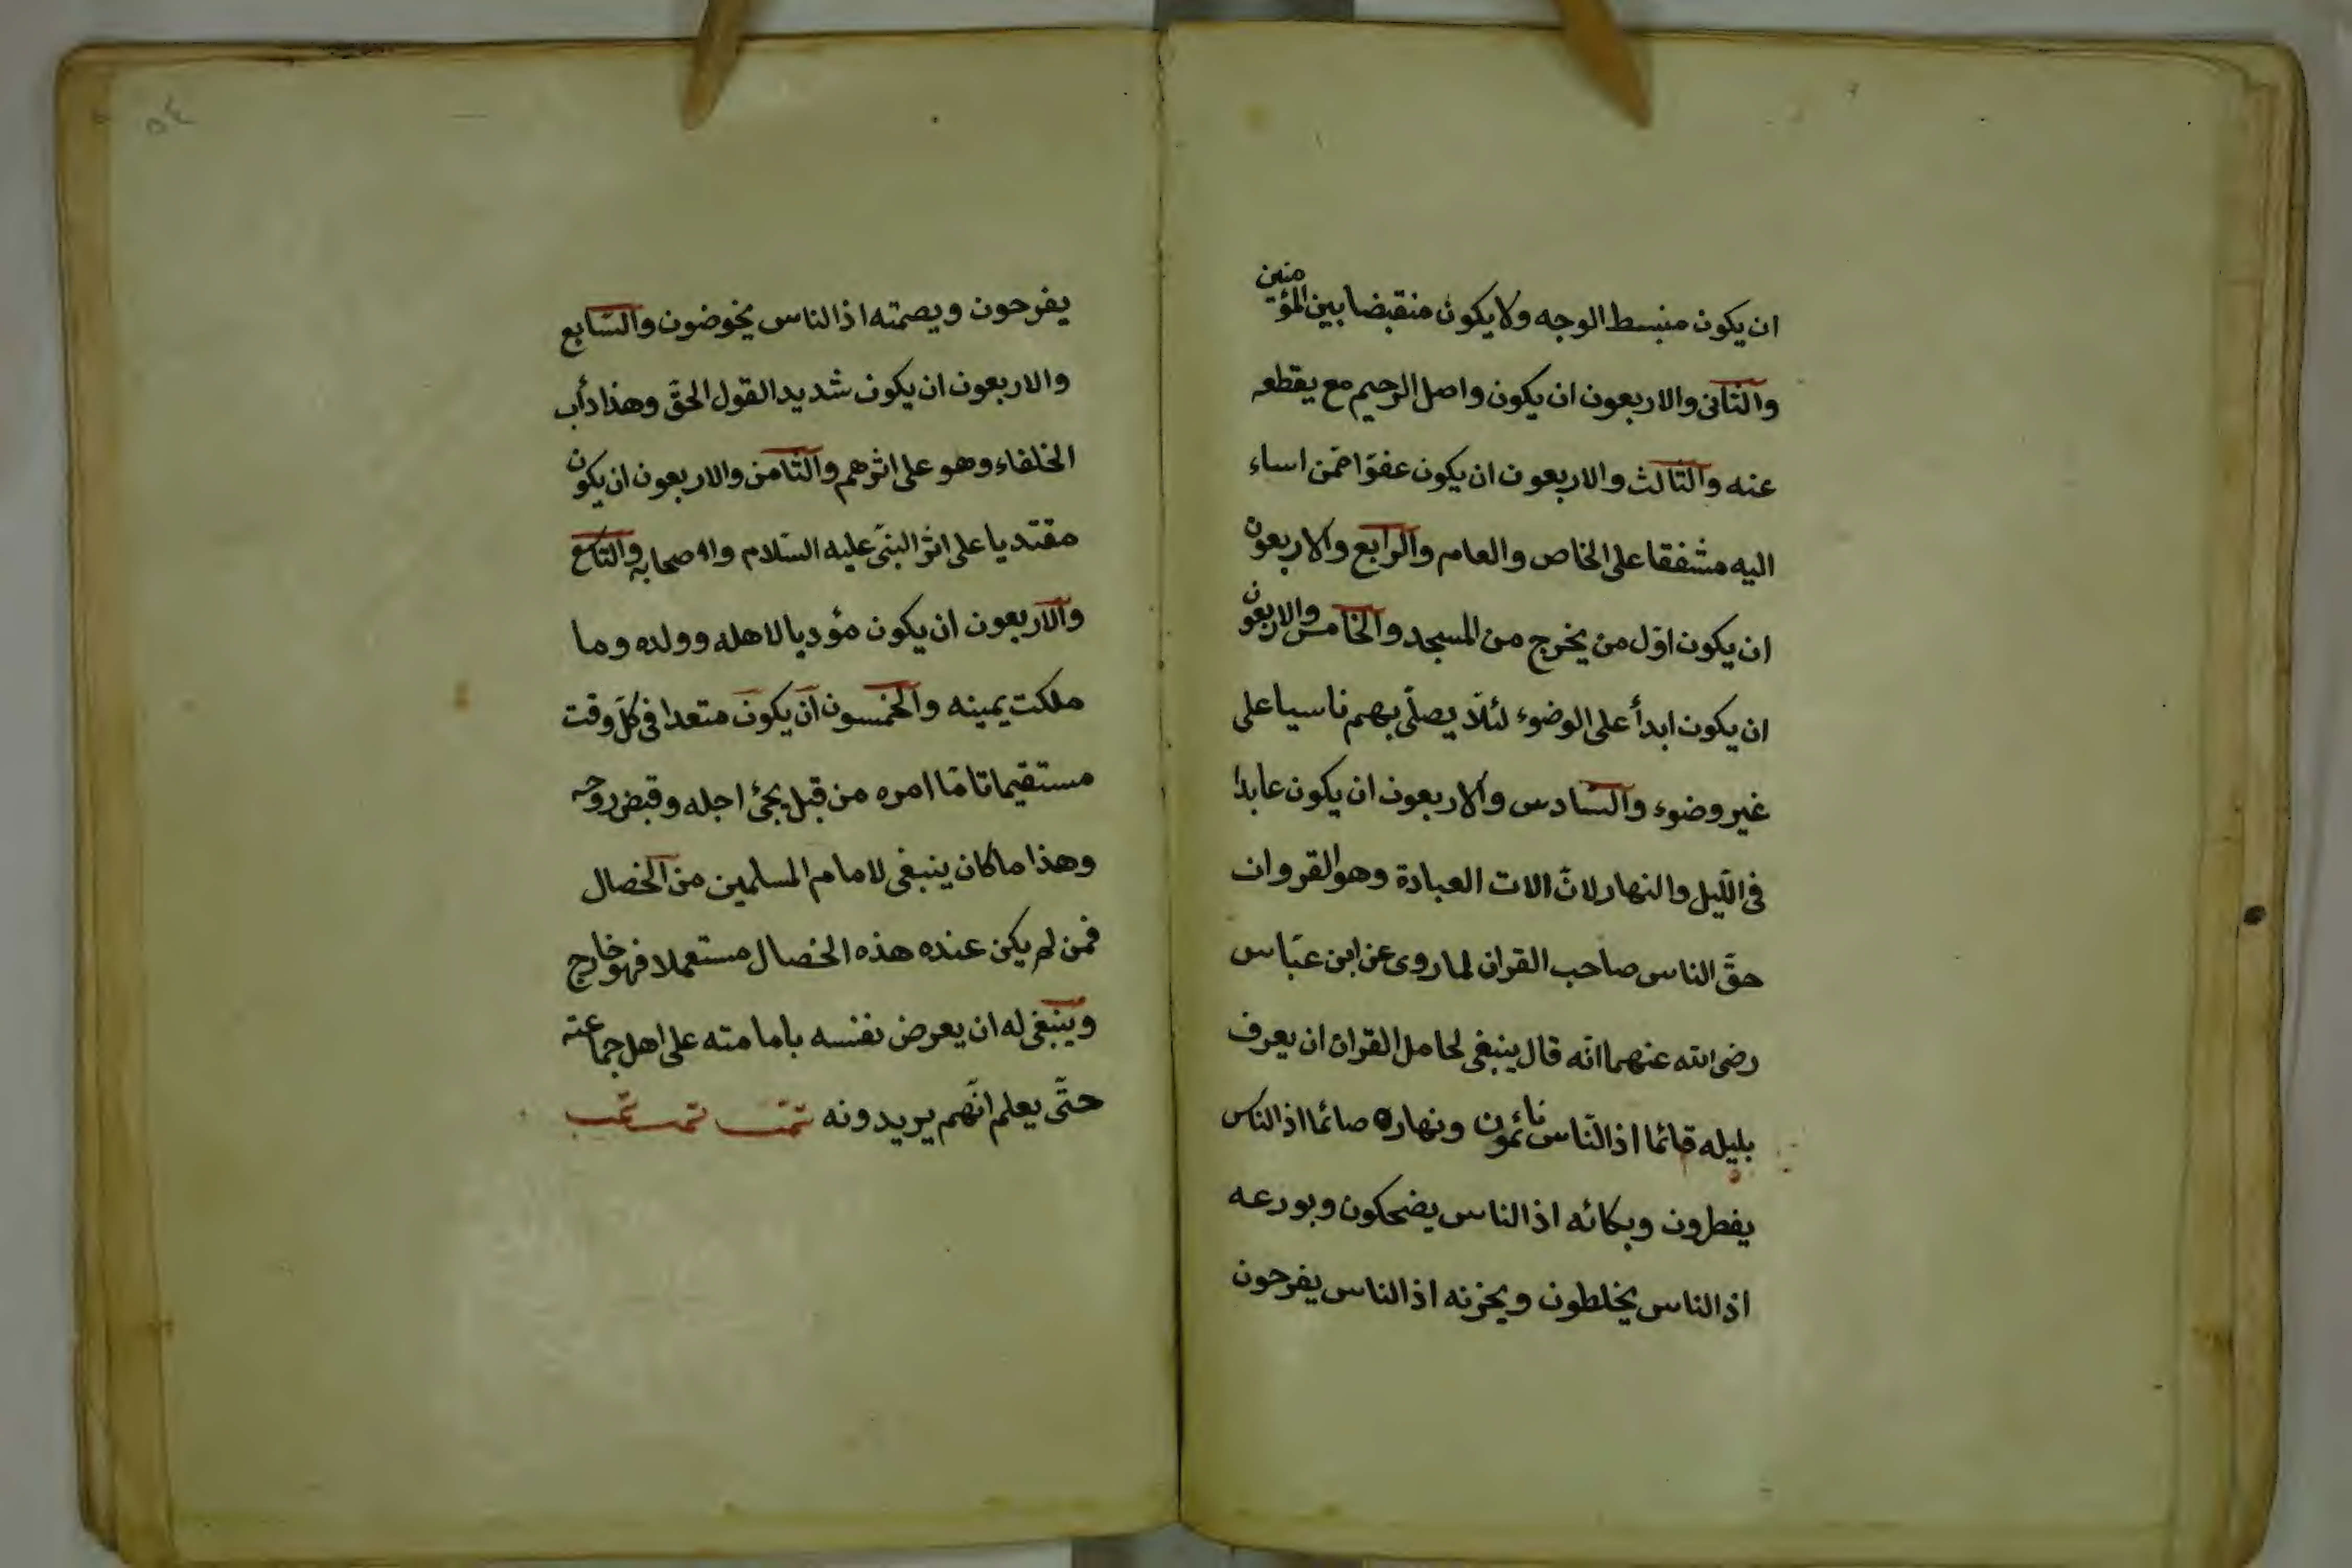 ان يكون منبسط الوجه ولا يكون منقبضا بين المؤمنين
والثانى والاربعون ان يكون واصل الرحيم مع يقطعه
عنه والثالث والاربعون ان يكون عفوا ضمن اساء
اليه مشفقا على الخاص والعام والرابع والاربعون
ان يكون اوّل من يخرج من المسجد والخامس والاربعون
ان يكون ابدأ على الوضوء لئلّا يصلّى بهم ناسيا على
غير وضوء والسّادس والاربعون ان يكون عابدا
فى اللّيل والنهار لانّ الات العبادة وهو القروان
حقّ الناس صاحب القران لما روى عن ابن عبّاس
رضى الله عنهما انّه قال ينبغى لحامل القران ان يعرف
بليله قائما اذ النّاس نائمون ونهاره صائما اذ الناس
يفطرون وبكائه اذ الناس يضحكون وبورعه
اذ الناس يخلطون ويحزنه اذ الناس يفرحون
٥٤
يفرحون ويصمته اذ الناس يخوضون والسّابع
والاربعون ان يكون شديد القول الحقّ وهذا دأب
الخلفاء وهو على اثرهم والثّامن والاربعون ان يكون
مقتديا على اثر النبىّ عليه السّلام واصحابه والتاسع
والاربعون ان يكون مؤديا لاهله وولده وما
ملكت يمينه والخمسون ان يكون متعدا فى كلّ وقت
مستقيما تامّا امره من قبل يجئ اجله وقبض روحه
وهذا ما كان ينبغى لامام المسلمين من الخصال
فمن لم يكن عنده هذه الخصال مستعملا فهو خارج
وينبغى له ان يعرض نفسه بامامته على اهل جماعته
حتّى يعلم انّهم يريدونه تمّت تمت تمت